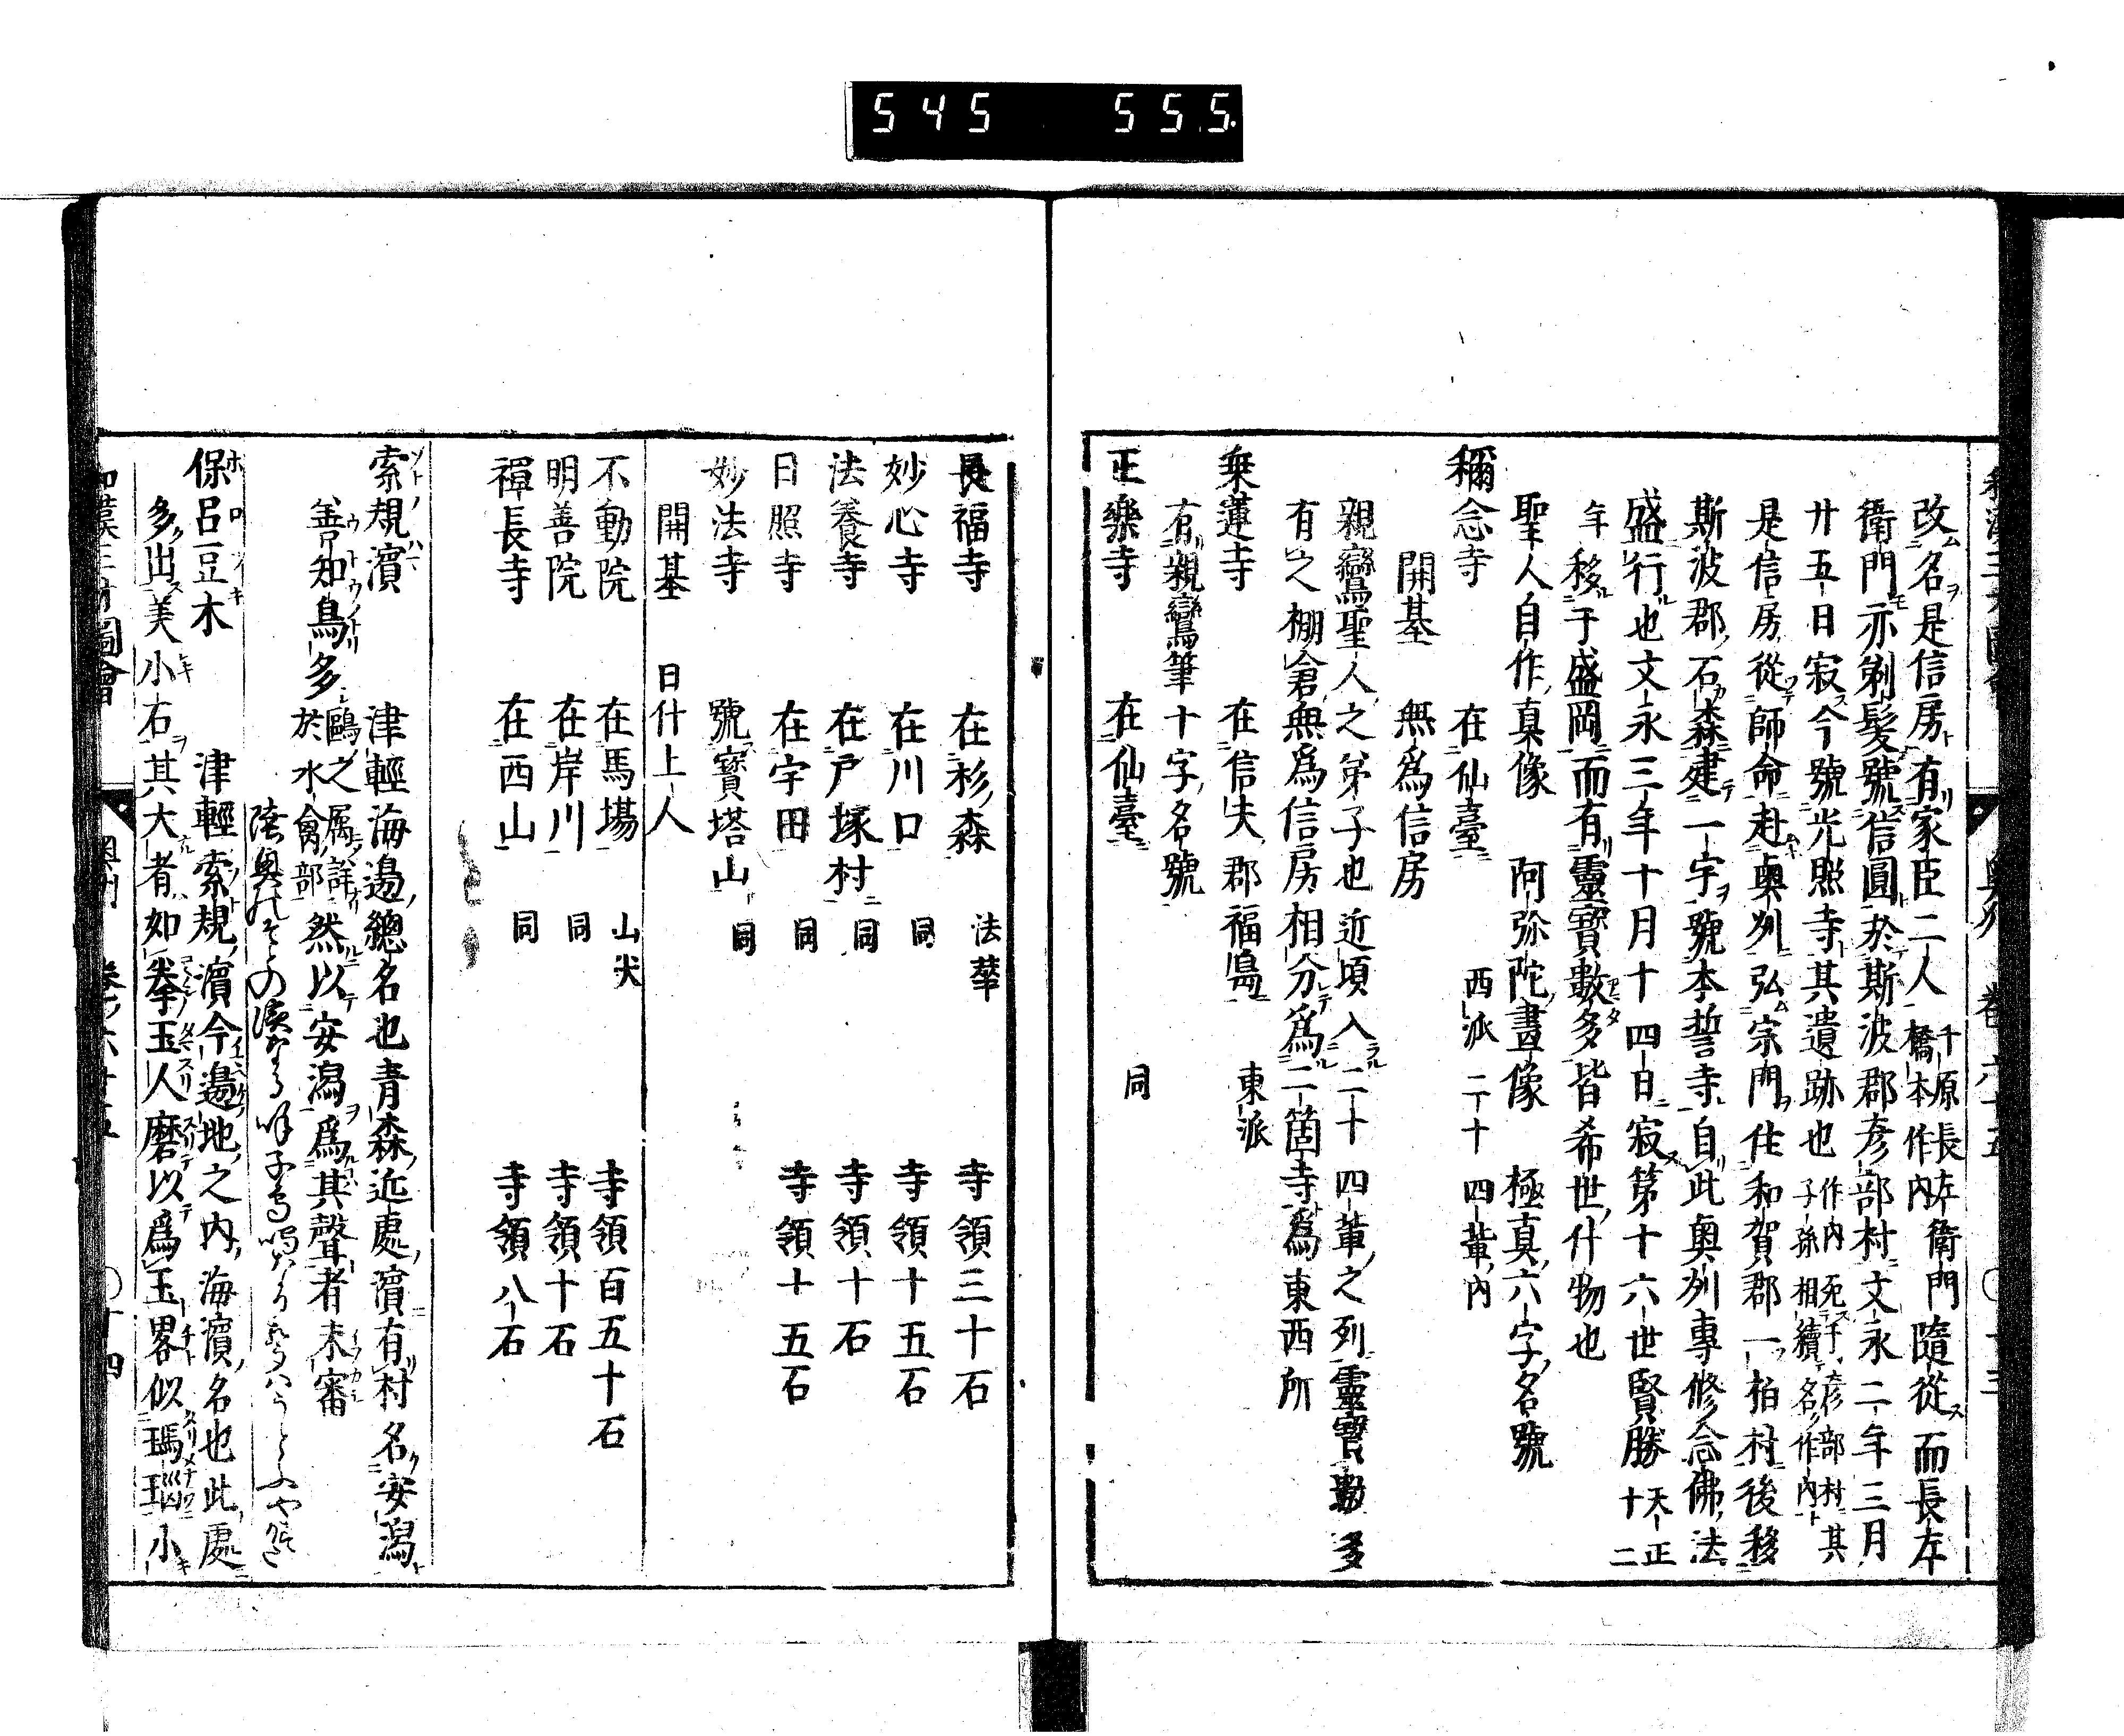 545 555.
改名是信房有家臣二人 千原長左衛門 橋本作内 隨從而長左
衛門亦剃髮號信圓於斯波郡彦部村文永二年三月
廿五日寂今號光照寺其遺跡也 作内死于彦部村其 子孫相續名作内
是信房從師命赴奥州弘宗門住和賀郡一柏村後移
斯波郡石森建一宇號本誓寺自此奥州專修念佛法
盛行也文永三年十月十四日寂第十六世賢勝 天正 十二
年移于盛岡而有靈寳數多皆希世什物也
聖人自作真像 阿弥陀畫像 極真六字名號
稱念寺 在仙臺 西派 二十四輩内
開基 無爲信房
親鸞聖人之弟子也近頃入二十四輩之列靈寳數多
有之棚倉無爲信房相分爲二箇寺爲東西所
乗蓮寺 在信夫郡福島 東派
有親鸞筆十字名號
正樂寺 在仙臺 同
長福寺 在杉森 法華 寺領三十石
妙心寺 在川口 同 寺領十五石
法養寺 在戸塚村 同 寺領十石
日照寺 在宇田 同 寺領十五石
妙法寺 號寳塔山 同
開基 日什上人
不動院 在馬場 山伏 寺領百五十石
明善院 在岸川 同 寺領十石
禪長寺 在西山 同 寺領八石
索規濱 津輕海邊總名也青森近處濱有村名安潟
善知鳥多 鷗之属詳 於水禽部 然以安潟爲其聲者未審
保呂豆木 津輕索規濱今邊地之内海濱名也此處
多出美小石其大者如拳玉人磨以爲玉畧似瑪瑙小
和漢三才圖會 奥州 卷六十五 〇十四